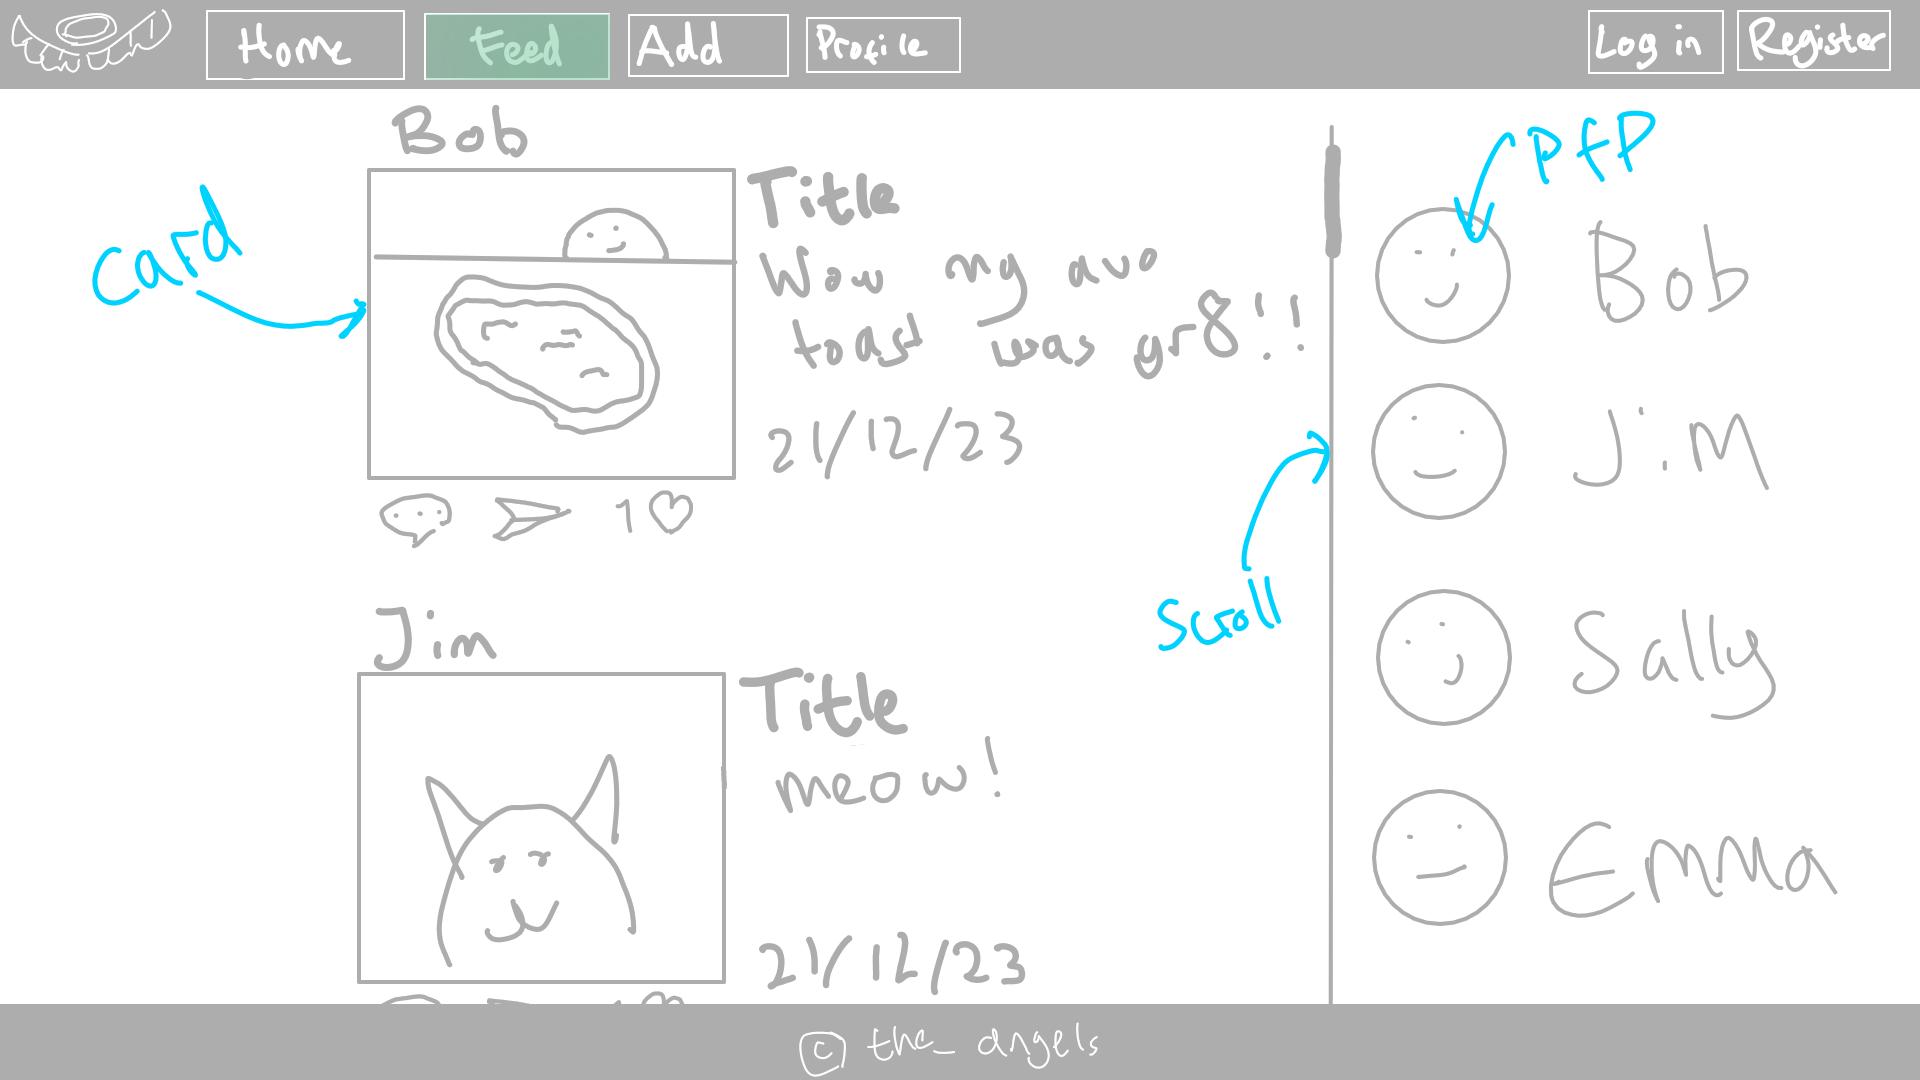 Home Feed Add Profile Log in Register
Bob
Title
Wow my avo
toast was gr8!!
21/12/23
1
card
Jim
Title
meow!
21/12/23
1
Scroll
PfP
Bob
Jim
Sally
Emma
© the_angels